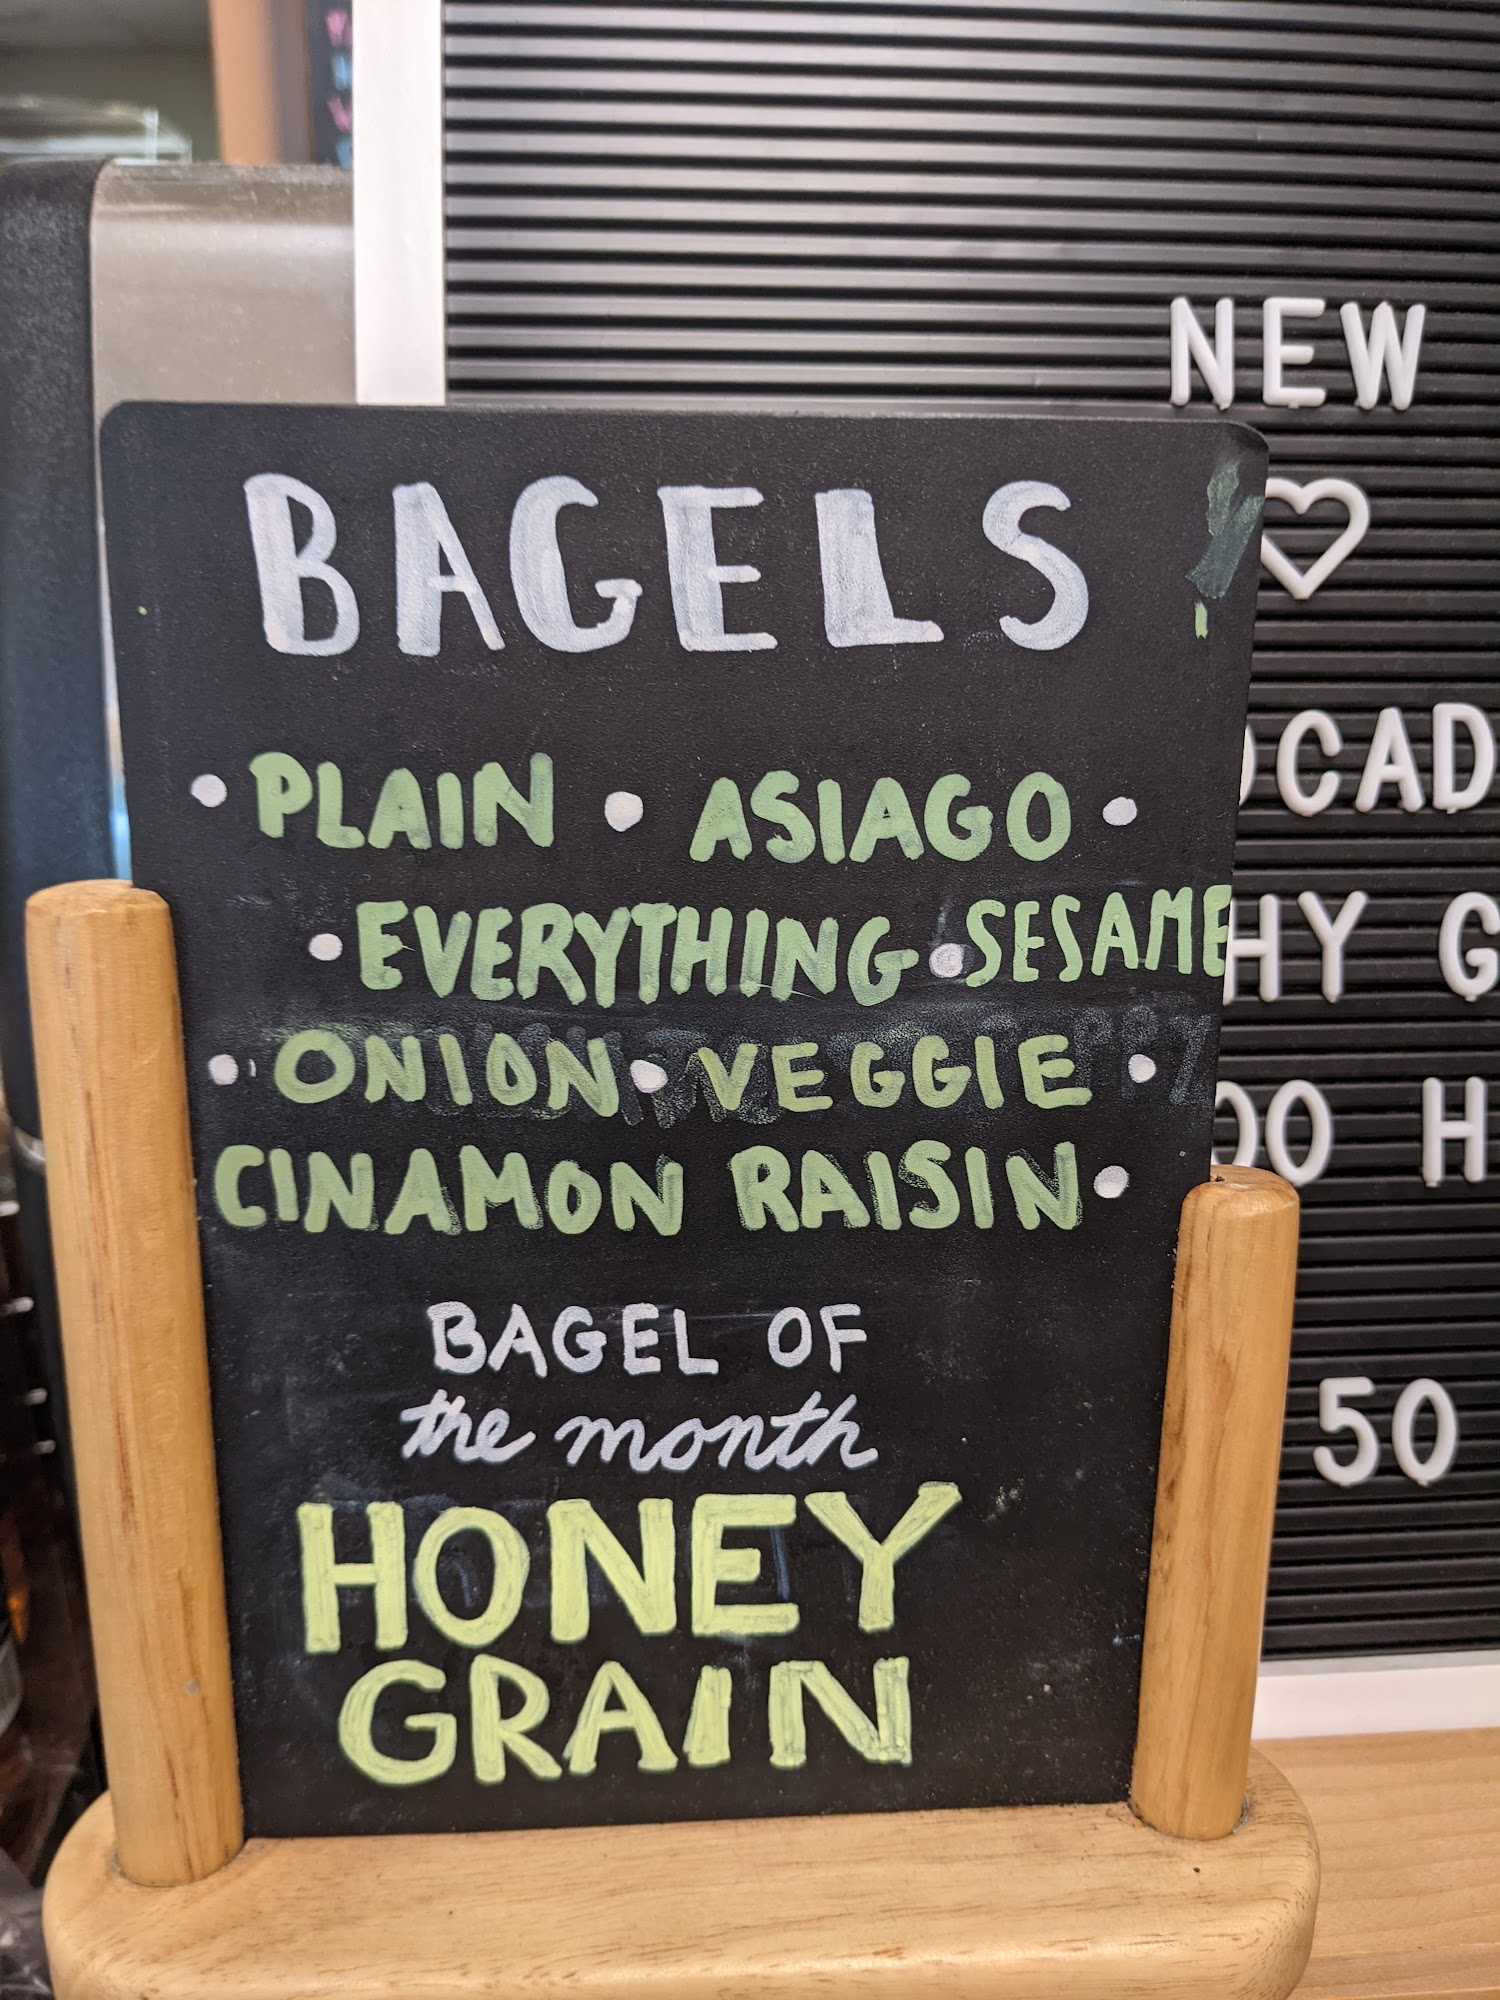 BAGELS
• PLAIN • ASIAGO •
• EVERYTHING • SESAME
• ONION • VEGGIE •
CINAMON RAISIN •
BAGEL OF
the month
HONEY
GRAIN
NEW
♡
50